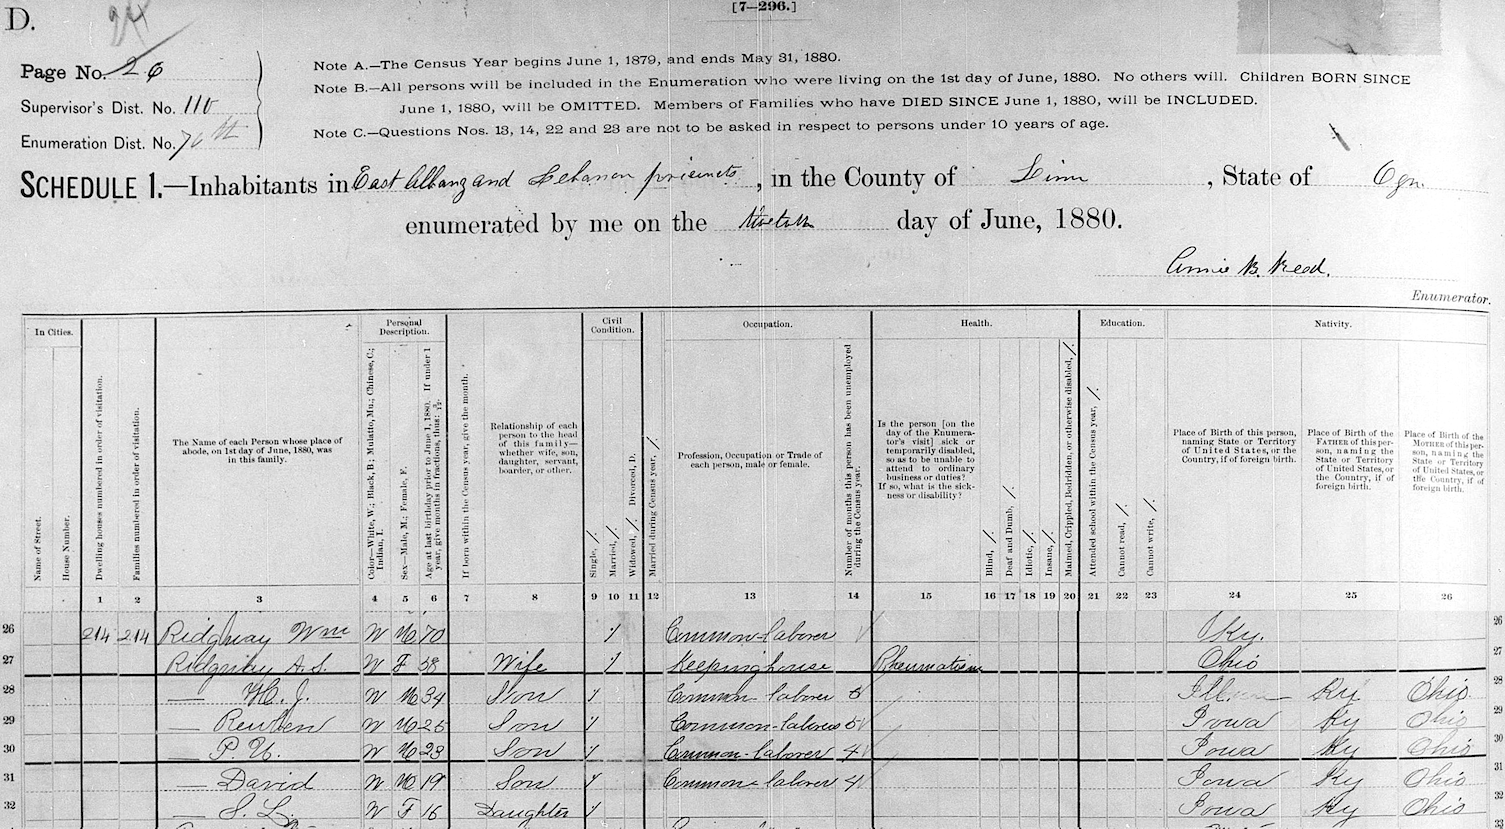 D.
24
[7-296.]
Page No. 26
Supervisor's Dist. No. 110
Enumeration Dist. No. 76th
Note A.—The Census Year begins June 1, 1879, and ends May 31, 1880.
Note B.—All persons will be included in the Enumeration who were living on the 1st day of June, 1880. No others will. Children BORN SINCE
June 1, 1880, will be OMITTED. Members of Families who have DIED SINCE June 1, 1880, will be INCLUDED.
Note C.—Questions Nos. 13, 14, 22 and 23 are not to be asked in respect to persons under 10 years of age.
SCHEDULE 1.—Inhabitants in East Albany and Lebanon precincts, in the County of Linn, State of Ogn.
enumerated by me on the day of June, 1880.
Annie B. Read.
Enumerator.
In Cities.
Name of Street.
House Number.
Dwelling houses numbered in order of visitation.
Families numbered in order of visitation.
The Name of each Person whose place of
abode, on 1st day of June, 1880, was
in this family.
Personal
Description.
Color—White, W.; Black, B.; Mulatto, Mu.; Chinese, C.;
Indian, I.
Sex—Male, M.; Female, F.
Age at last birthday prior to June 1, 1880. If under 1
year, give months in fractions, thus: 3/12.
If born within the Census year, give the month.
Relationship of each
person to the head
of this family—
whether wife, son,
daughter, servant,
boarder, or other.
Civil
Condition.
Single, /.
Married, /.
Widowed, /. Divorced, D.
Married during Census year, /.
Occupation.
Profession, Occupation or Trade of
each person, male or female.
Number of months this person has been unemployed
during the Census year.
Health.
Is the person [on the
day of the Enumera-
tor's visit] sick or
temporarily disabled,
so as to be unable to
attend to ordinary
business or duties?
If so, what is the sick-
ness or disability?
Blind, /.
Deaf and Dumb, /.
Idiotic, /.
Insane, /.
Maimed, Crippled, Bedridden, or otherwise disabled, /.
Education.
Attended school within the Census year, /.
Cannot read, /.
Cannot write, /.
Nativity.
Place of Birth of this person,
naming State or Territory
of United States, or the
Country, if of foreign birth.
Place of Birth of the
FATHER of this per-
son, naming the
State or Territory
of United States, or
the Country, if of
foreign birth.
Place of Birth of the
MOTHER of this per-
son, naming the
State or Territory
of United States, or
the Country, if of
foreign birth.
1 2 3 4 5 6 7 8 9 10 11 12 13 14 15 16 17 18 19 20 21 22 23 24 25 26
26 214 214 Ridgway Wm W M 70 / Common-laborer Ky. 26
27 A.S. W F 58 Wife / Keeping house Rheumatism Ohio 27
28 — H. J. W M 34 Son / Common laborer 5 Ill Ky Ohio. 28
29 — Reuben W M 25 Son / Common-laborer 5 Iowa Ky Ohio 29
30 — P. U. W M 23 Son / Common-laborer 4 Iowa Ky Ohio 30
31 — David W M 19 Son / Common-laborer 4 Iowa Ky Ohio 31
32 — S. L. W F 16 Daughter / Iowa Ky Ohio 32
33